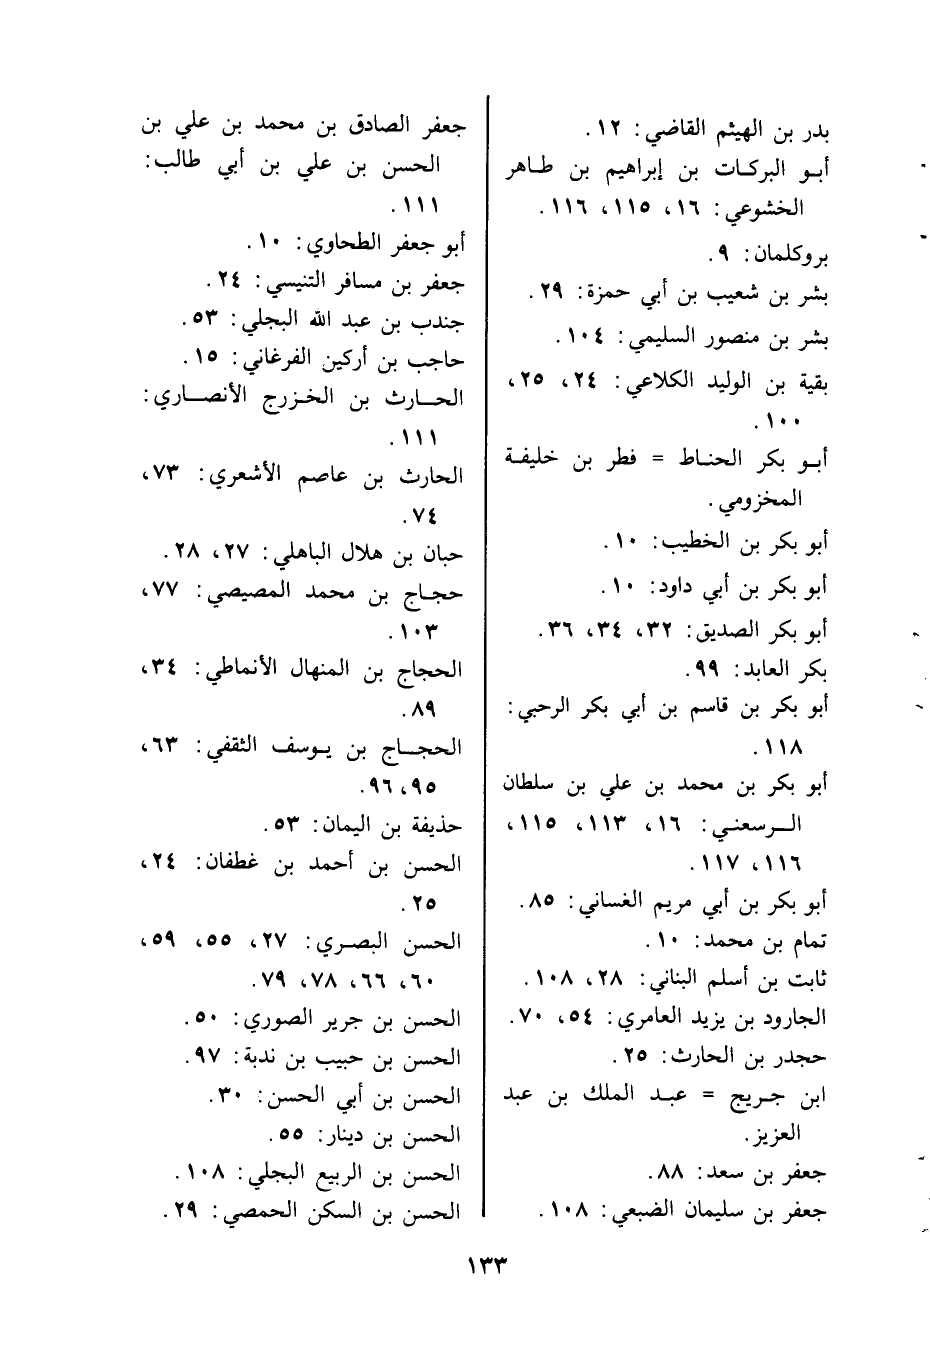 بدر بن الهيثم القاضي: ١٢.
أبـو البركـات بن إبراهيم بن طـاهر
الخشوعي: ١٦، ١١٥، ١١٦.
بروكلمان: ٩.
بشر بن شعيب بن أبي حمزة: ٢٩.
بشر بن منصور السليمي: ١٠٤.
بقية بن الوليد الكلاعي: ٢٤، ٢٥،
١٠٠.
أبـو بكر الحناط = فطر بن خليفـة
المخزومي.
أبو بكر بن الخطيب: ١٠.
أبو بكر بن أبي داود: ١٠.
أبو بكر الصديق: ٣٢، ٣٤، ٣٦.
بكر العابد: ٩٩.
أبو بكر بن قاسم بن أبي بكر الرحبي:
١١٨.
أبو بكر بن محمد بن علي بن سلطان
الـرسعنـي: ١٦، ١١٣، ١١٥،
١١٦، ١١٧.
أبو بكر بن أبي مريم الغساني: ٨٥.
تمام بن محمد: ١٠.
ثابت بن أسلم البناني: ٢٨، ١٠٨.
الجارود بن يزيد العامري: ٥٤، ٧٠.
حجدر بن الحارث: ٢٥.
ابن جـريج = عبـد الملك بن عبد
العزيز.
جعفر بن سعد: ٨٨.
جعفر بن سليمان الضبعي: ١٠٨.
جعفر الصادق بن محمد بن علي بن
الحسن بن علي بن أبي طالب:
١١١.
أبو جعفر الطحاوي: ١٠.
جعفر بن مسافر التنيسي: ٢٤.
جندب بن عبد الله البجلي: ٥٣.
حاجب بن أركين الفرغاني: ١٥.
الحـارث بن الخـزرج الأنصـاري:
١١١.
الحارث بن عاصم الأشعري: ٧٣،
٧٤.
حبان بن هلال الباهلي: ٢٧، ٢٨.
حجـاج بن محمد المصيصي: ٧٧،
١٠٣.
الحجاج بن المنهال الأنماطي: ٣٤،
٨٩.
الحجـاج بن يـوسف الثقفي: ٦٣،
٩٥، ٩٦.
حذيفة بن اليمان: ٥٣.
الحسن بن أحمد بن غطفان: ٢٤،
٢٥.
الحسن البصـري: ٢٧، ٥٥، ٥٩،
٦٠، ٦٦، ٧٨، ٧٩.
الحسن بن جرير الصوري: ٥٠.
الحسن بن حبيب بن ندبة: ٩٧.
الحسن بن أبي الحسن: ٣٠.
الحسن بن دينار: ٥٥.
الحسن بن الربيع البجلي: ١٠٨.
الحسن بن السكن الحمصي: ٢٩.
١٣٣